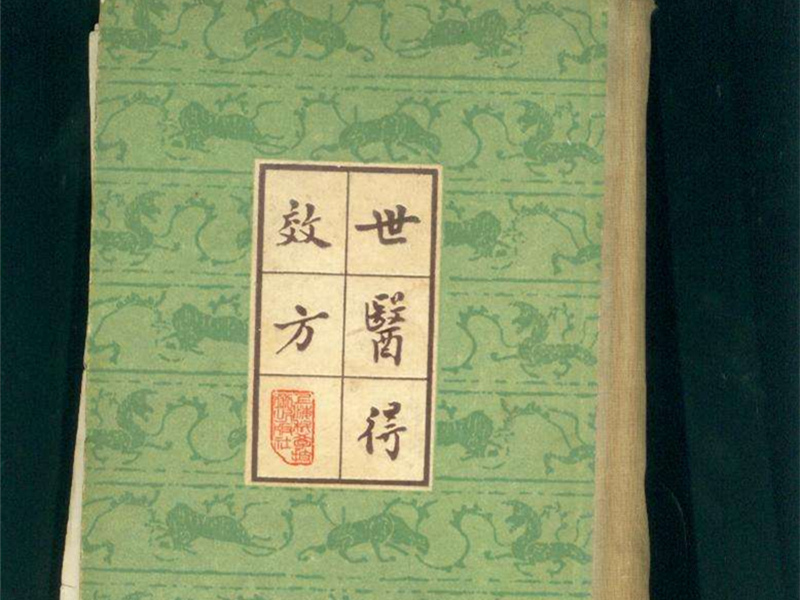 世醫得
效方